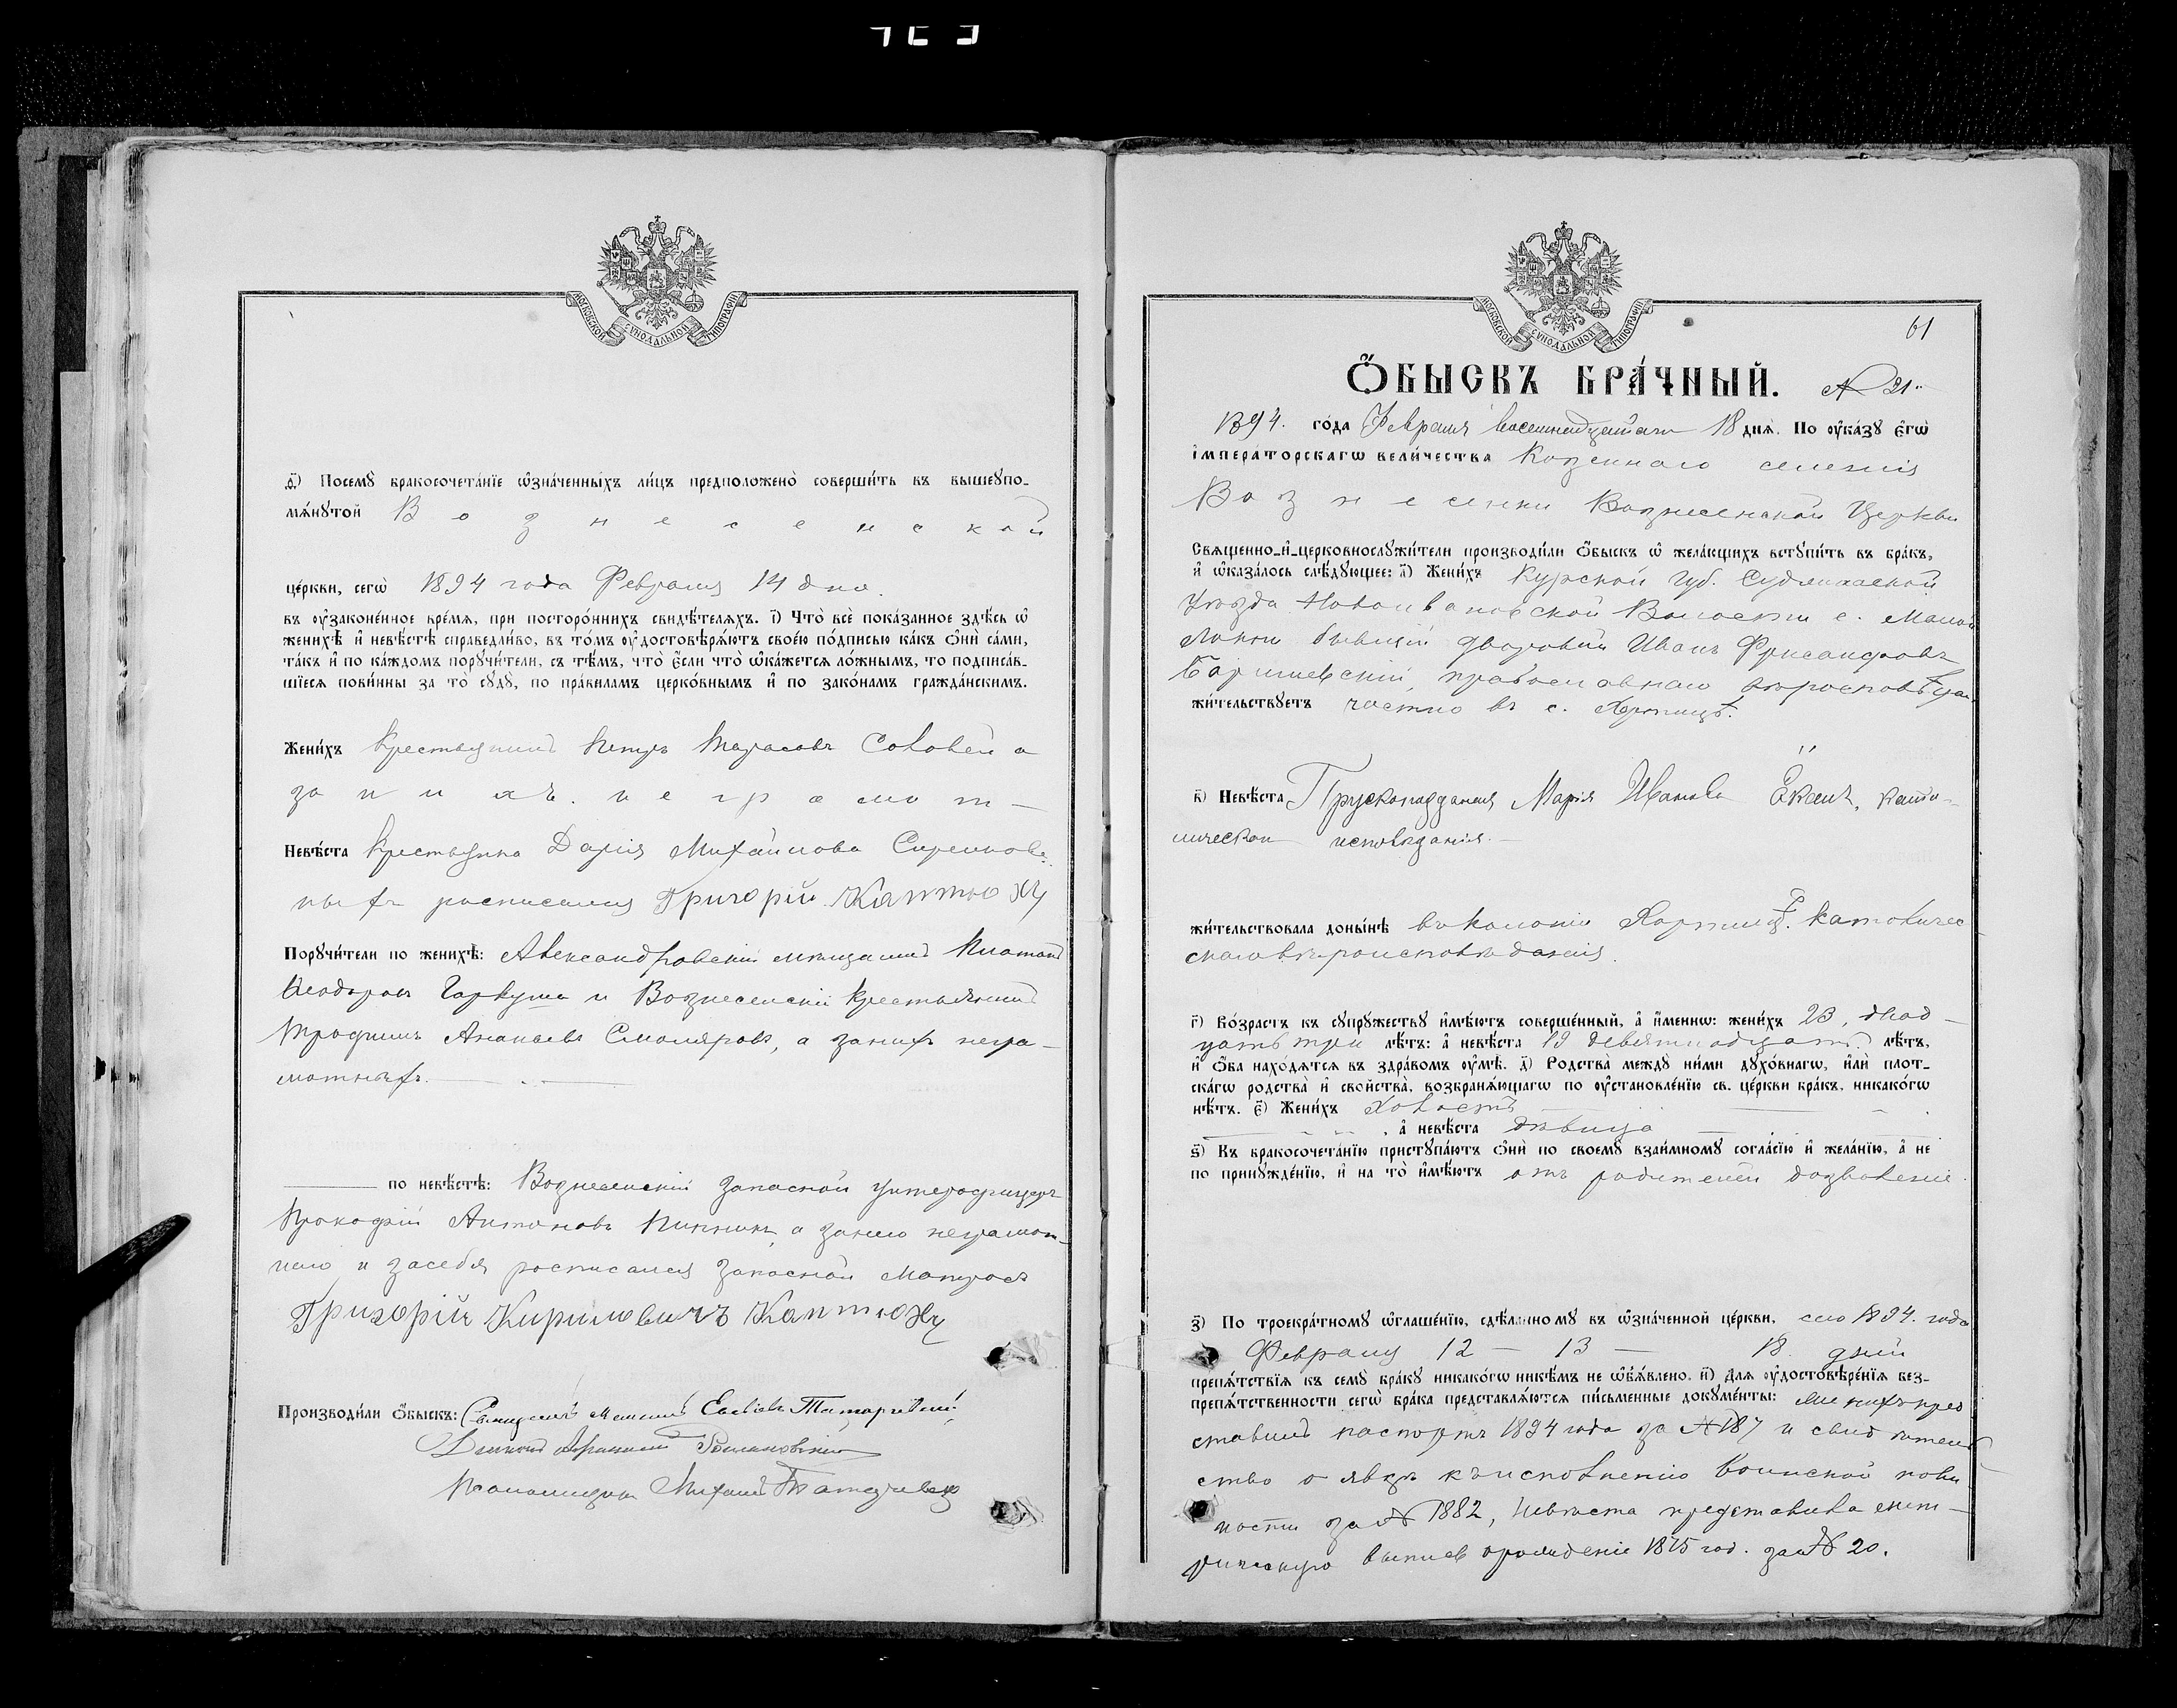 МОСКОВСКОЙ СѴНОДАЛЬНОЙ ТИПОГРАФІИ
ѳ҃) Посемꙋ̀ бракосочета́нїе ѡ҆зна́ченныхъ ли́цъ предположено̀ соверши́ть въ вышеꙋпо-
мѧ́нꙋтой Вознесенской
це́ркви, сегѡ̀ 1894 года Февраля 14 дня.
въ ᲂу҆зако́ненное вре́мѧ, при посторо́ннихъ свидѣ́телѧхъ. і҃) Что̀ всѐ пока́занное здѣ́сь ѡ҆
женихѣ̀ и҆ невѣ́стѣ справедли́во, въ то́мъ ᲂу҆достовѣрѧ́ютъ свое́ю по́дписью ка́къ ѻ҆нѝ са́ми,
та́къ и҆ по ка́ждомъ порꙋчи́тели, съ тѣ́мъ, что̀ є҆́сли что̀ ѡ҆ка́жетсѧ ло́жнымъ, то подписа́в-
шїесѧ пови́нны за то̀ сꙋдꙋ̀, по пра́виламъ церко́внымъ и҆ по зако́намъ гражда́нскимъ.
Жени́хъ Крестьянинъ Петръ Тарасовъ Соловей а
за нихъ неграмот-
Невѣ́ста Крестьянка Дарія Михаилова
ныхъ росписался Григорій Каптюхъ
Порꙋчи́тели по женихѣ̀: Александровскій мѣщанинъ Платонъ
Ѳеодоровъ Гаркуша и Вознесенскій крестьянинъ
Трофимъ Ананьевъ Смоляровъ, а за нихъ негра-
мотныхъ.
по невѣ́стѣ: Вознесенскій запасной унтерофицеръ
Прокофій Антоновъ а за него неграмот-
наго и за себя росписался запасной матросъ
Григорій Кириловичъ Каптюхъ
Производи́ли ѻ҆́быскъ: Священникъ
Діаконъ
Псаломщикъ Михаилъ
МОСКОВСКОЙ СѴНОДАЛЬНОЙ ТИПОГРАФІИ
61
Ѻ҆́БЫСКЪ БРА́ЧНЫЙ. № 21
1894. го́да Февраля восемнадцатаго 18 днѧ̀. По ᲂу҆ка́зꙋ є҆гѡ̀
і҆мпера́торскагѡ вели́чества Казеннаго селенія
Вознесенки Вознесенской Церкви
Свѧщенно-и҆-церковнослꙋжи́тели производи́ли ѻ҆́быскъ ѡ҆ жела́ющихъ встꙋпи́ть въ бра́къ,
и҆ ѡ҆каза́лось слѣ́дꙋющее: а҃) Жени́хъ Курской губ. Суджанской
Уѣзда Новоивановской Волости с. Малой
Локни бывшій дворовый Иванъ
православнаго вѣроисповѣдан.
жи́тельствꙋетъ частно въ с. Хортицѣ.
в҃) Невѣ́ста Прускоподданая Марія Иванова Ёкель, като-
лическаго исповѣданія.
жи́тельствовала доны́нѣ въ колоніи Хортицѣ. католичес-
скаго вѣроисповѣданія.
г҃) Во́зрастъ къ сꙋпрꙋ́жествꙋ и҆мѣ́ютъ соверше́нный, а҆ и҆́меннѡ: жени́хъ 23, двад-
цать три лѣ́тъ: а҆ невѣ́ста 19 девятнадцать лѣ́тъ,
и҆ ѻ҆́ба нахо́дѧтсѧ въ здра́вомъ ᲂу҆мѣ̀. д҃) Родства̀ междꙋ̀ ни́ми дꙋхо́внагѡ, и҆лѝ плот-
ска́гѡ родства̀ и҆ сво́йства, возбранѧ́ющагѡ по ᲂу҆становле́нїю св. це́ркви бра́къ, никако́гѡ
нѣ́тъ. є҃) Жени́хъ Холостъ
, а҆ невѣ́ста дѣвица
ѕ҃) Къ бракосочета́нїю пристꙋпа́ютъ ѻ҆нѝ по своемꙋ̀ взаи́мномꙋ согла́сїю и҆ жела́нїю, а҆ не
по принꙋжде́нїю, и҆ на то̀ и҆мѣ́ютъ отъ родителей дозволеніе.
з҃) По троекра́тномꙋ ѡ҆глаше́нїю, сдѣ́ланномꙋ въ ѡ҆зна́ченной це́ркви, сего 1894. года
Февраля 12 — 13 — 18 дней
препѧ́тствїѧ къ семꙋ̀ бра́кꙋ никако́гѡ никѣ́мъ не ѡ҆б̾ѧ́влено. и҃) Длѧ ᲂу҆достовѣре́нїѧ без-
препѧ́тственности сегѡ̀ бра́ка представлѧ́ютсѧ пи́сьменные докꙋме́нты: Женихъ пред
ставилъ паспортъ 1894 года за № 187 и свидѣтель
ство о явкѣ къ исполненію воинской повин
ности за № 1882, Невѣста представила метрическую выпись о рожденіе 1875 год. за № 20.